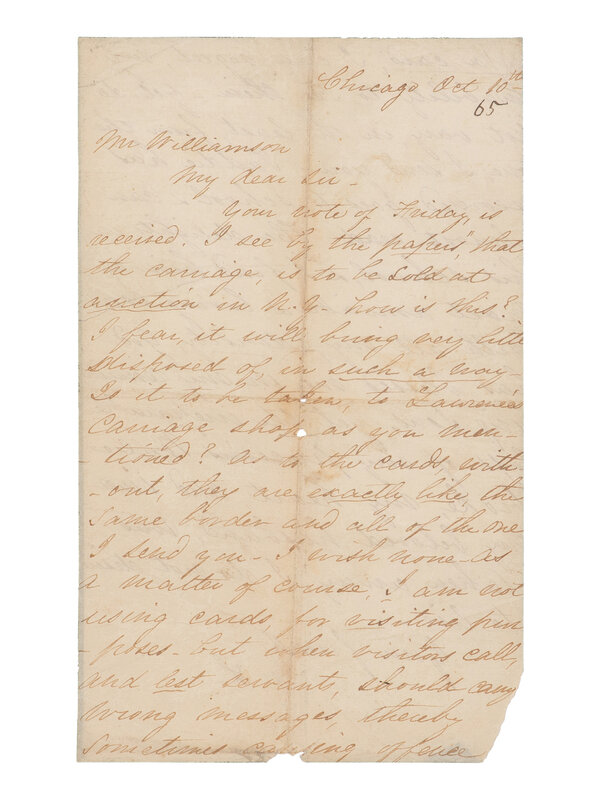 Chicago Oct 10th
65
Mr Williamson
My dear Sir -
Your note of Friday, is
received. I see by the papers, that
the carriage, is to be sold at
auction in N.Y. - how is this?
I fear, it will bring very little
disposed of, in such a way -
Is it to be taken, to Lawrence's
Carriage shop as you men-
- tioned? As to the cards, with-
- out, they are exactly like, the
same border and all of the one
I send you - I wish none - as
a matter of course, I am not
using cards, for visiting pur
- poses - but when visitors call,
and lest servants, should carry
wrong messages, thereby
sometimes causing offence